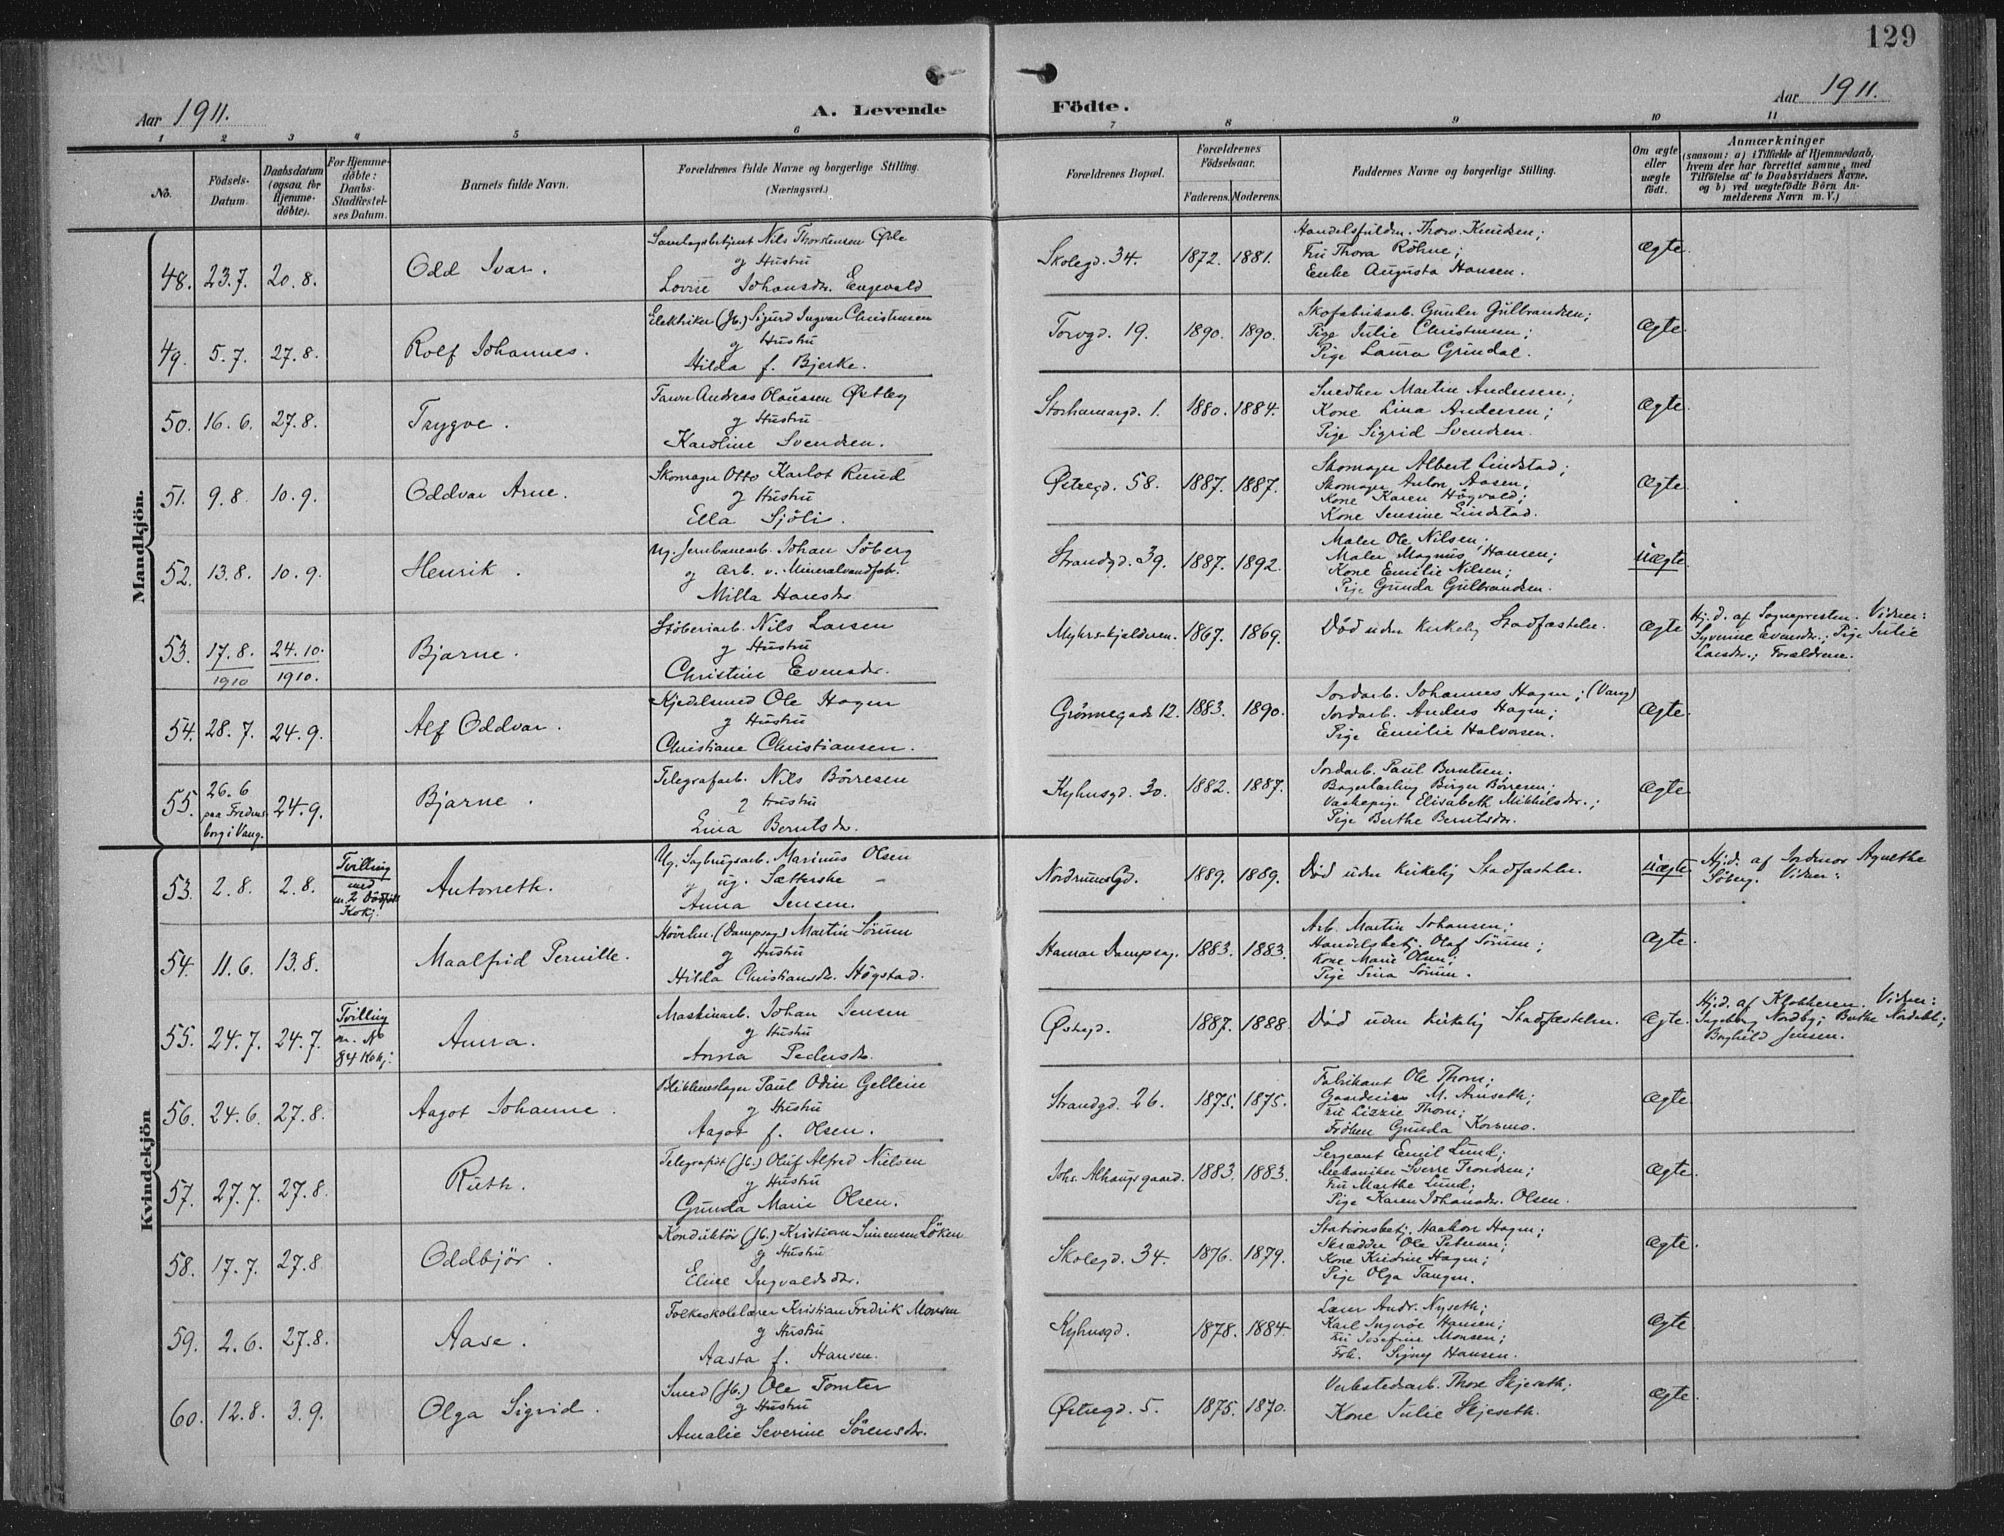 129
Aar 1911.
A. Levende Födte.
Aar 1911.
1 2 3 4 5 6 7 8 9 10 11
No.
Födsels-Datum.
Daabsdatum (ogsaa for Hjemmedöbte).
For Hjemmedöbte: Daabs-Stadfæstelses Datum.
Barnets fulde Navn.
Forældrenes fulde Navne og borgerlige Stilling.
(Næringsvei.)
Forældrenes Bopæl.
Forældrenes Födselsaar.
Faderens. Moderens.
Faddernes Navne og borgerlige Stilling.
Om ægte eller uægte födt.
Anmærkninger
(saasom: a) i Tilfælde af Hjemmedaab, hvem der har forrettet samme, med Tilföielse af to Daabsvidners Navne, og b) ved uægtefödte Börn Anmelderens Navn m. V.)
Mandkjön.
48. 23.7. 20.8. Odd Ivar.
Nils Thorstensen
og Hustru
Lovise Johansdr. Engevald
Skolegd. 34. 1872. 1881.
Fru Thora Röhne;
Enke Augusta Hansen.
ægte.
49. 5.7. 27.8. Rolf Johannes.
Elektriker (Jb.) Sigurd Ingvar Christensen
og Hustru
Hilda f. Bjerke.
Torvgd. 19. 1890. 1890.
Skofabrikarb. Gunder Gulbrandsen;
Pige Julie Christensen;
Pige Laura Grundal.
ægte.
50. 16.6. 27.8. Trygve.
Andreas Olaussen Østby
og Hustru
Karoline Svendsen.
Storhamargd. 1. 1880. 1884.
Snedker Martin Andersen;
Kone Lina Andersen;
Pige Sigrid Svendsen.
ægte.
51. 9.8. 10.9. Oddvar Arne.
Skomager Otto Karlot Ruud
og Hustru
Ella Sjöli.
Østregd. 58. 1887. 1887.
Skomager Albert Lindstad;
Skomager Anton Aasen;
Kone Karen Högvald;
Kone Jensine Lindstad.
ægte.
52. 13.8. 10.9. Henrik.
Ug. Jernbanearb. Johan Söberg
og Arb. v. Mineralvandfabr.
Milla Hansdr
Strandgd. 39. 1887. 1892.
Maler Ole Nilsen;
Maler Magnus Hansen;
Kone Emilie Nilsen;
Pige Gunda Gulbrandsen.
uægte.
53. 17.8. 1910 24.10. 1910. Bjarne.
Støberiarb. Nils Larsen
og Hustru
Christine Evensdr.
1867. 1869.
Død uden kirkelig Stadfæstelse.
ægte
Hj.d. af Sognepresten. Vidner:
Syverine Evensdr.; Pige Julie
Larsdr.; Forældrene.
54. 28.7. 24.9. Alf Oddvar.
Kjedelsmed Ole Hagen
og Hustru
Christiane Christiansen.
Grönnegade 12. 1883. 1890.
Jordarb. Johannes Hagen; (Vang)
Jordarb. Anders Hagen;
Pige Emilie Halvorsen.
ægte.
55. 26.6 paa Fredensborg i Vang. 24.9. Bjarne.
Telegrafarb. Nils Börresen
og Hustru
Lina Berntsdr.
Kyhusgd. 30. 1882. 1887.
Jordarb. Paul Berntsen;
Bagerlærling Birger Börresen;
Vaskepige Elisabeth Mikkelsdr.;
Pige Berthe Berntsdr.
ægte
Kvindekjön
53. 2.8. 2.8. Tvilling med Antoneth.
Ug. Sagbrugsarb. Marinus Olsen
og ug.
Anna Jensen.
1889. 1889.
Död uden kirkelig Stadfæstelse.
uægte
Hj.d. af Jordmor Agnethe
Söberg. Vidner:
54. 11.6. 13.8. Maalfrid Pernille.
(Dampsag) Martin Sörum
og Hustru
Hilda Christiansdr. Högstad.
Hamar Dampsag. 1883. 1883.
Arb. Martin Johansen;
Handelsbetj. Olaf Sörum;
Kone Marie Olsen;
Pige Lina Sörum.
ægte.
55. 24.7. 24.7. Tvilling m. No 84 Kkj. Anna.
Maskinarb. Johan Jensen
og Hustru
Anna Pedersdr.
Østregd. 1887. 1888.
Död uden kirkelig Stadfæstelse.
ægte.
Hj.d. af Klokkeren. Vidner:
Ingeborg Nordby; Berthe
Borghild Jensen.
56. 24.6. 27.8. Aagot Johanne.
Blikkenslager Paul Odin Gellein
og Hustru
Aagot f. Olsen.
Strandgd. 26. 1875. 1875.
Fabrikant Ole Thorn;
M. Amseth;
Fru Lizzie Thorn;
Fröken Gunda Korsmo.
ægte.
57. 27.7. 27.8. Ruth.
Telegrafist (Jb.) Oluf Alfred Nielsen
og Hustru
Gunda Marie Olsen.
Johs. Alhaugsgaard. 1883. 1883.
Sergeant Emil Lund;
Mekaniker Sverre Trondsen;
Fru Marthe Lund;
Pige Karen Johansdr. Olsen.
ægte.
58. 17.7. 27.8. Oddbjör.
Konduktör (Jb.) Kristian Simensen Löken
og Hustru
Elise Ingvaldsdr.
Skolegd. 34. 1876. 1879.
Stationsbetj. Haakon Hagen;
Skrædder Ole Petersen;
Kone Kristine Hagen;
Pige Olga Tangen.
ægte.
59. 2.6. 27.8. Aase.
Folkeskolelærer Kristian Fredrik Monsen
og Hustru
Aasta f. Hansen.
Kyhusgd. 1878. 1884.
Lærer Andr. Nyseth;
Karl Ingeröe Hansen;
Fru Josefine Monsen;
Frk. Signy Hansen.
ægte
60. 12.8. 3.9. Olga Sigrid.
Smed (Jb.) Ole Tomter
og Hustru
Amalie Severine Sörensdr.
Østregd. 5. 1875. 1870.
Verkstedsarb. Thore Skjeseth;
Kone Julie Skjeseth.
ægte.